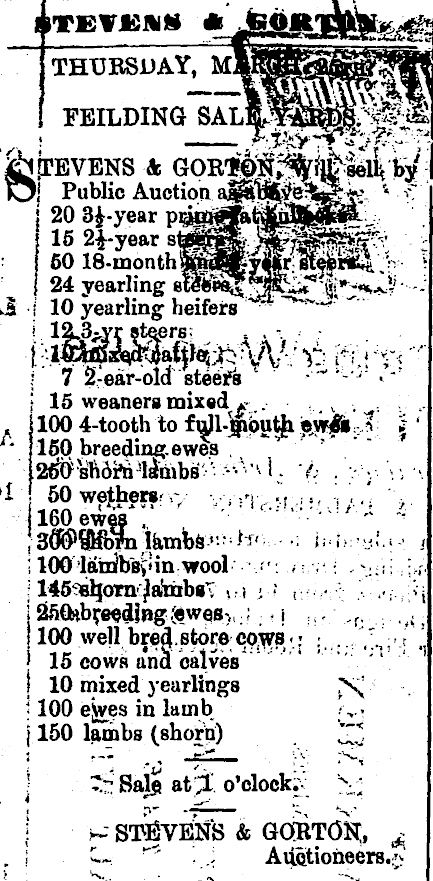 STEVENS & GORTON.
THURSDAY, MARCH
FEILDING SALE YARDS.
STEVENS & GORTON, Will sell by
Public Auction as above
20 3½-year prime fat bullocks
15 2½-year steers
50 18-month and year steers
24 yearling steers
10 yearling heifers
12 3-yr steers
10 mixed cattle
7 2-ear-old steers
15 weaners mixed
100 4-tooth to full-mouth ewes
150 breeding ewes
250 shorn lambs
50 wethers
160 ewes
300 shorn lambs
100 lambs, in wool
145 shorn lambs
250 breeding ewes
100 well bred store cows
15 cows and calves
10 mixed yearlings
100 ewes in lamb
150 lambs (shorn)
Sale at 1 o'clock.
STEVENS & GORTON,
Auctioneers.